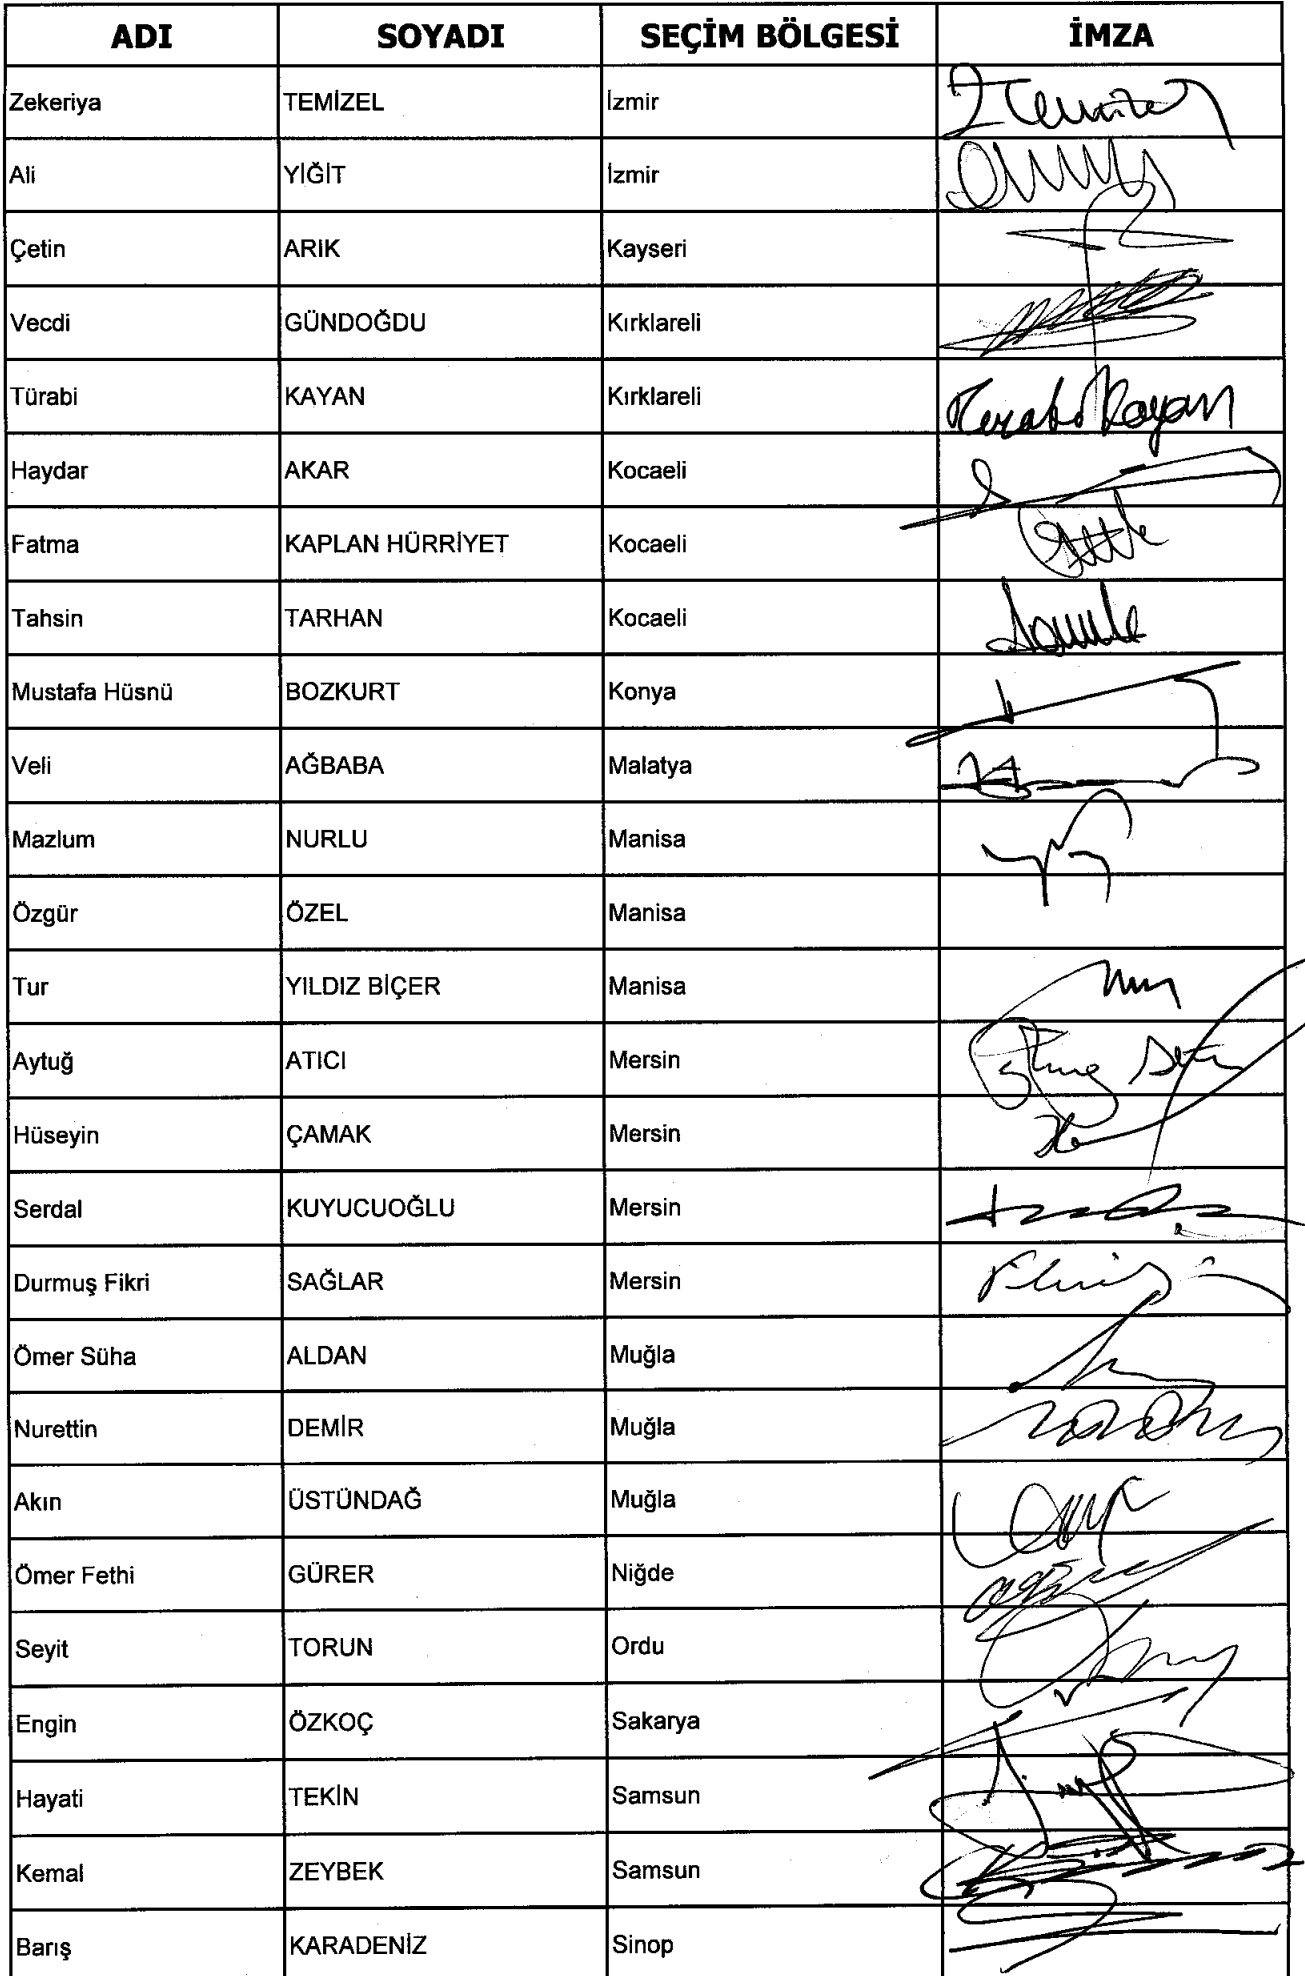 ADI SOYADI SEÇİM BÖLGESİ İMZA
Zekeriya TEMİZEL İzmir
Ali YİĞİT İzmir
Çetin ARIK Kayseri
Vecdi GÜNDOĞDU Kırklareli
Türabi KAYAN Kırklareli
Haydar AKAR Kocaeli
Fatma KAPLAN HÜRRİYET Kocaeli
Tahsin TARHAN Kocaeli
Mustafa Hüsnü BOZKURT Konya
Veli AĞBABA Malatya
Mazlum NURLU Manisa
Özgür ÖZEL Manisa
Tur YILDIZ BİÇER Manisa
Aytuğ ATICI Mersin
Hüseyin ÇAMAK Mersin
Serdal KUYUCUOĞLU Mersin
Durmuş Fikri SAĞLAR Mersin
Ömer Süha ALDAN Muğla
Nurettin DEMİR Muğla
Akın ÜSTÜNDAĞ Muğla
Ömer Fethi GÜRER Niğde
Seyit TORUN Ordu
Engin ÖZKOÇ Sakarya
Hayati TEKİN Samsun
Kemal ZEYBEK Samsun
Barış KARADENİZ Sinop